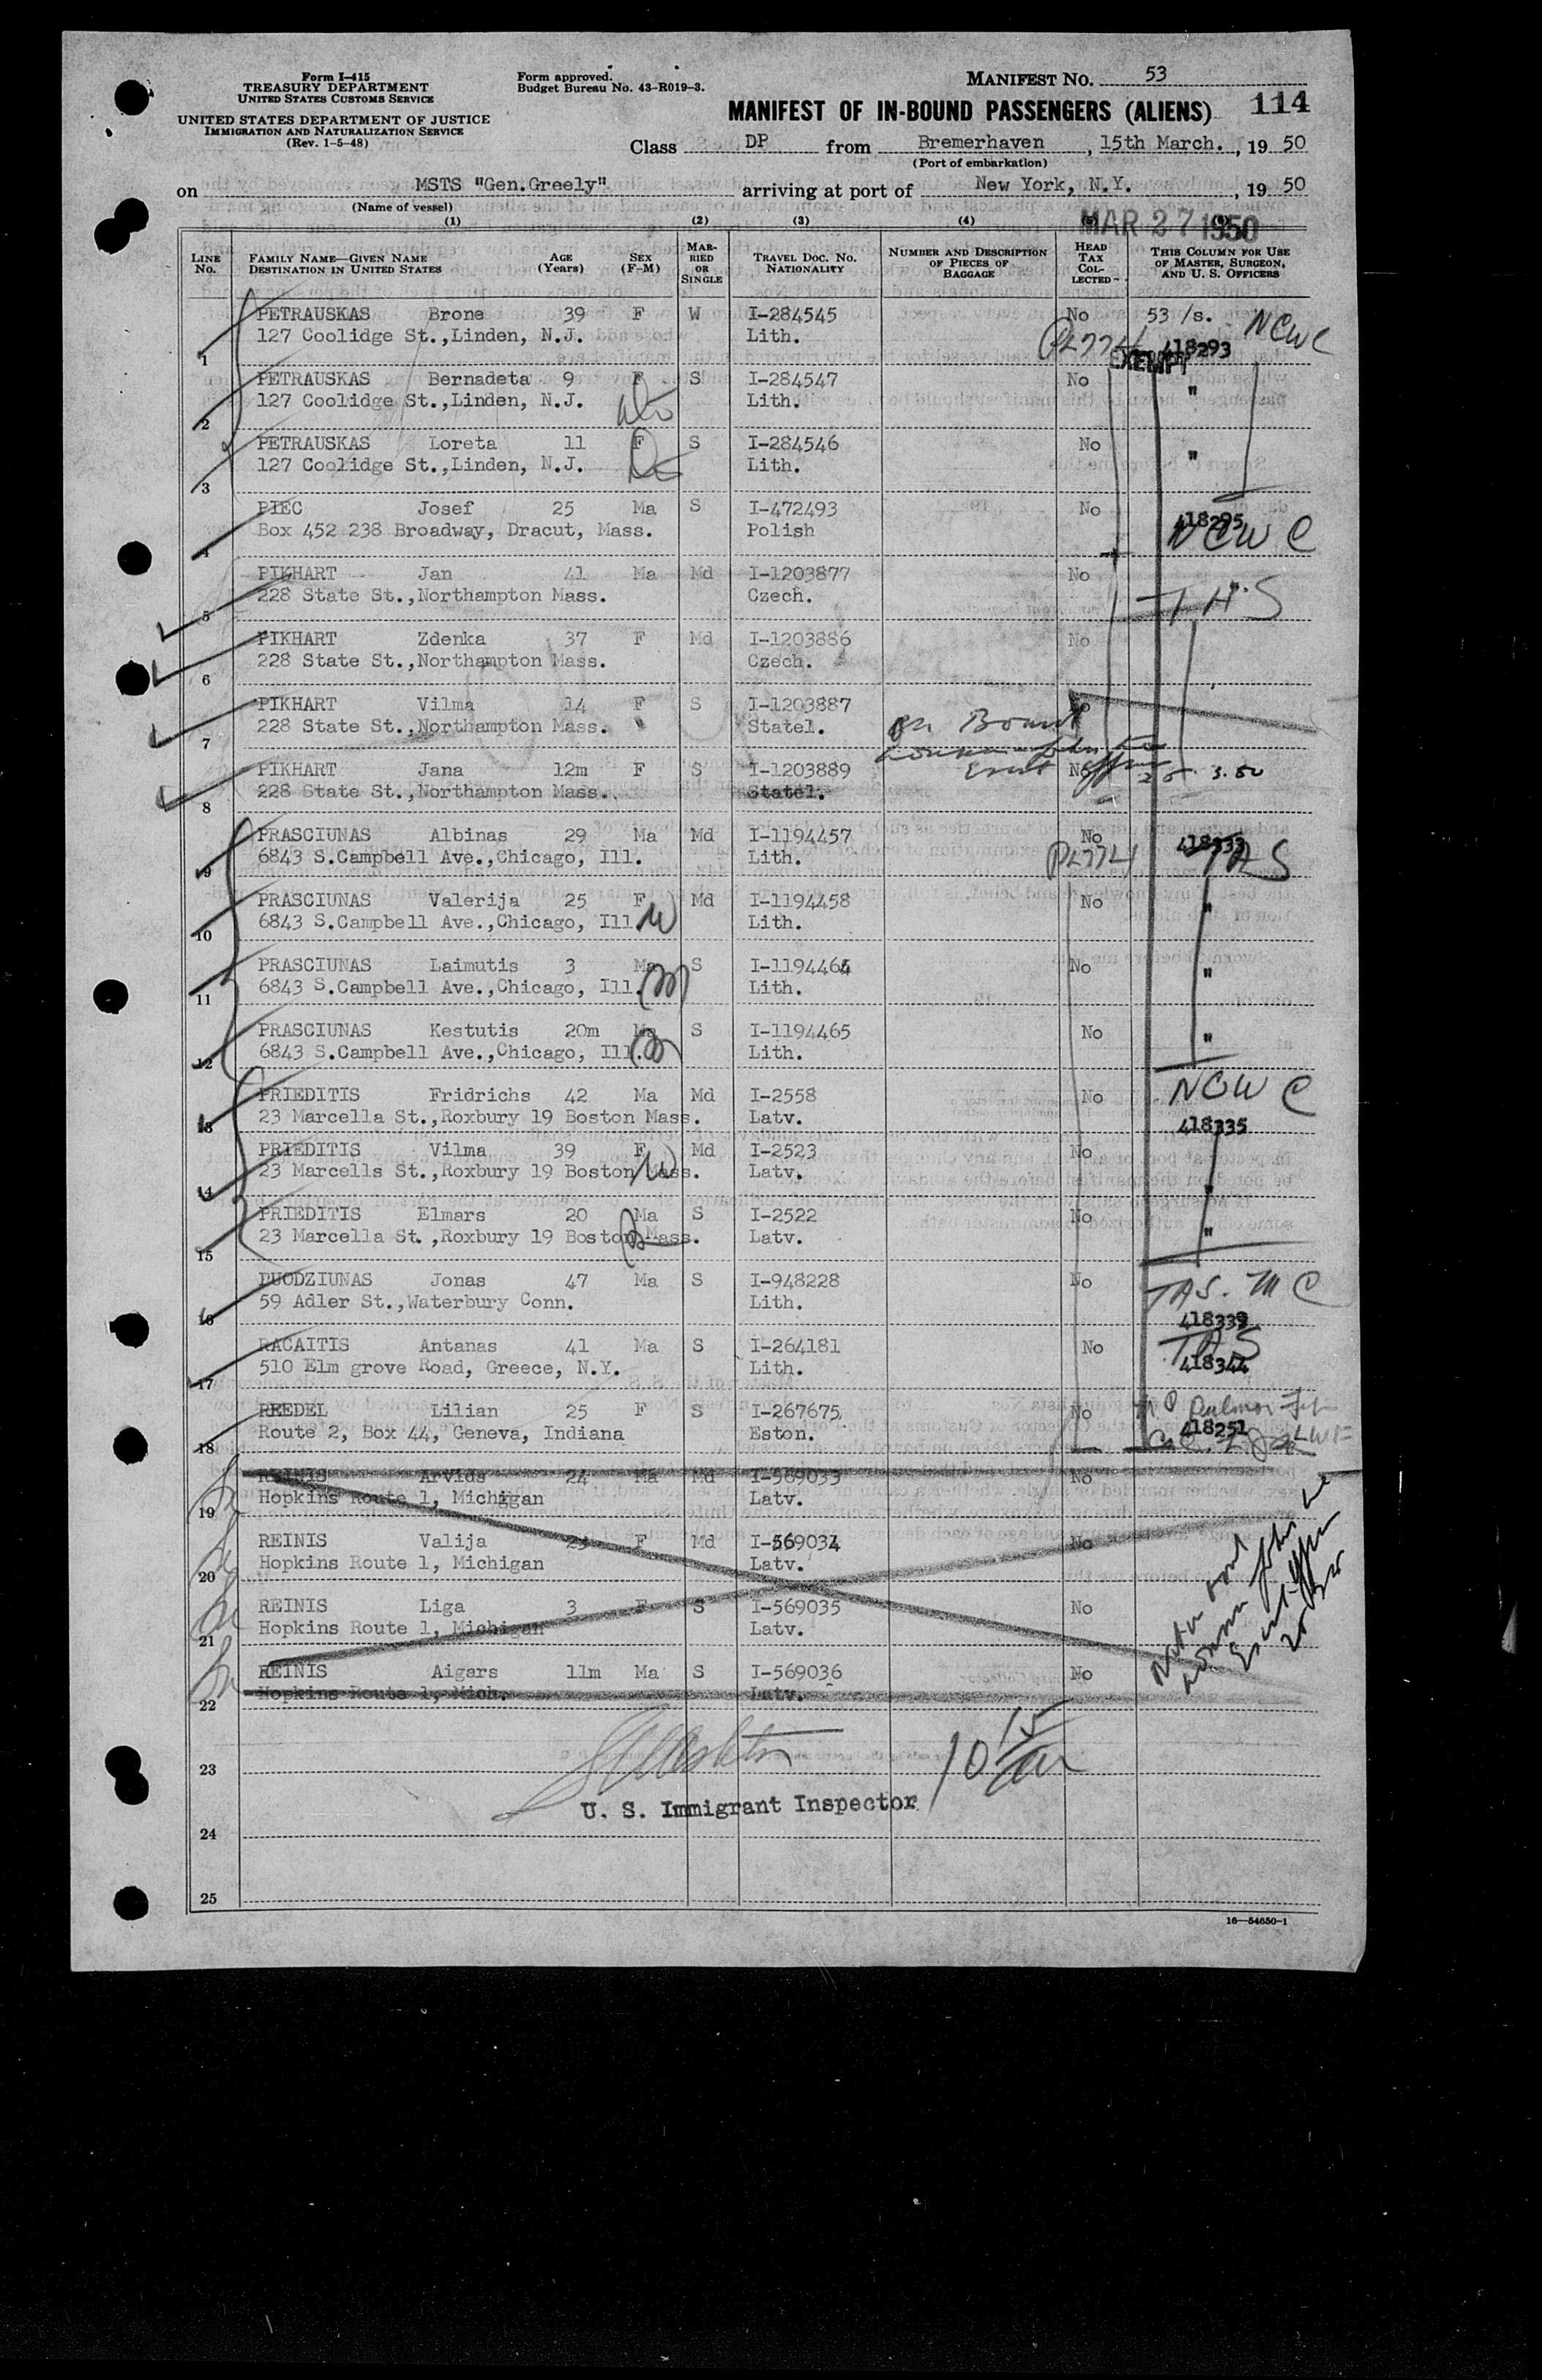 Form I-415
TREASURY DEPARTMENT
UNITED STATES CUSTOMS SERVICE
UNITED STATES DEPARTMENT OF JUSTICE
IMMIGRATION AND NATURALIZATION SERVICE
(Rev. 1-5-48)
Form approved.
Budget Bureau No. 43-R019-3.
MANIFEST NO. 53
MANIFEST OF IN-BOUND PASSENGERS (ALIENS) 114
Class DP from Bremerhaven, 15th March., 19 50
(Port of embarkation)
on MSTS "Gen.Greely" arriving at port of New York, N.Y., 19 50
(Name of vessel)
MAR 27 1950
(1) (2) (3) (4)
LINE NO. FAMILY NAME—GIVEN NAME DESTINATION IN UNITED STATES AGE (Years) SEX (F-M) MARRIED OR SINGLE TRAVEL DOC. NO. NATIONALITY NUMBER AND DESCRIPTION OF PIECES OF BAGGAGE HEAD TAX COLLECTED THIS COLUMN FOR USE OF MASTER, SURGEON, AND U. S. OFFICERS
1 PETRAUSKAS Brone 39 F W I-284545 No 53 /s. NCWC
127 Coolidge St.,Linden, N.J. Lith. PL774 418293
EXEMPT
2 PETRAUSKAS Bernadeta 9 F S I-284547 No "
127 Coolidge St.,Linden, N.J. Lith.
3 PETRAUSKAS Loreta 11 F S I-284546 No "
127 Coolidge St.,Linden, N.J. Lith.
4 PIEC Josef 25 Ma S I-472493 No 418295
Box 452 238 Broadway, Dracut, Mass. Polish NCWC
5 PIKHART Jan 41 Ma Md I-1203877 No "
228 State St.,Northampton Mass. Czech.
6 PIKHART Zdenka 37 F Md I-1203886 No
228 State St.,Northampton Mass. Czech.
7 PIKHART Vilma 14 F S I-1203887 No
228 State St.,Northampton Mass. Statel. On Board
8 PIKHART Jana 12m F S I-1203889 No
228 State St.,Northampton Mass. Statel.
9 PRASCIUNAS Albinas 29 Ma Md I-1194457 No 418333
6843 S.Campbell Ave.,Chicago, Ill. Lith. PL774
10 PRASCIUNAS Valerija 25 F Md I-1194458 No "
6843 S.Campbell Ave.,Chicago, Ill. W Lith.
11 PRASCIUNAS Laimutis 3 Ma S I-1194464 No "
6843 S.Campbell Ave.,Chicago, Ill. Lith.
12 PRASCIUNAS Kestutis 20m Ma S I-1194465 No "
6843 S.Campbell Ave.,Chicago, Ill. Lith.
13 PRIEDITIS Fridrichs 42 Ma Md I-2558 No NCWC
23 Marcella St.,Roxbury 19 Boston Mass. Latv. 418335
14 PRIEDITIS Vilma 39 F Md I-2523 No "
23 Marcells St.,Roxbury 19 Boston Mass. W Latv.
15 PRIEDITIS Elmars 20 Ma S I-2522 No "
23 Marcella St.,Roxbury 19 Boston Mass. Latv.
16 PUODZIUNAS Jonas 47 Ma S I-948228 No
59 Adler St.,Waterbury Conn. Lith. 418339
17 RACAITIS Antanas 41 Ma S I-264181 No
510 Elm grove Road, Greece, N.Y. Lith. 418344
18 REEDEL Lilian 25 F S I-267675 No
Route 2, Box 44, Geneva, Indiana Eston. 418251
19 REINIS Arvids 24 Ma Md I-569033 No
Hopkins Route 1, Michigan Latv.
20 REINIS Valija 23 F Md I-569034 No
Hopkins Route 1, Michigan Latv.
21 REINIS Liga 3 F S I-569035 No
Hopkins Route 1, Michigan Latv.
22 REINIS Aigars 11m Ma S I-569036 No
Hopkins Route 1, Mich. Latv.
23
U. S. Immigrant Inspector
24
25
16—54650-1